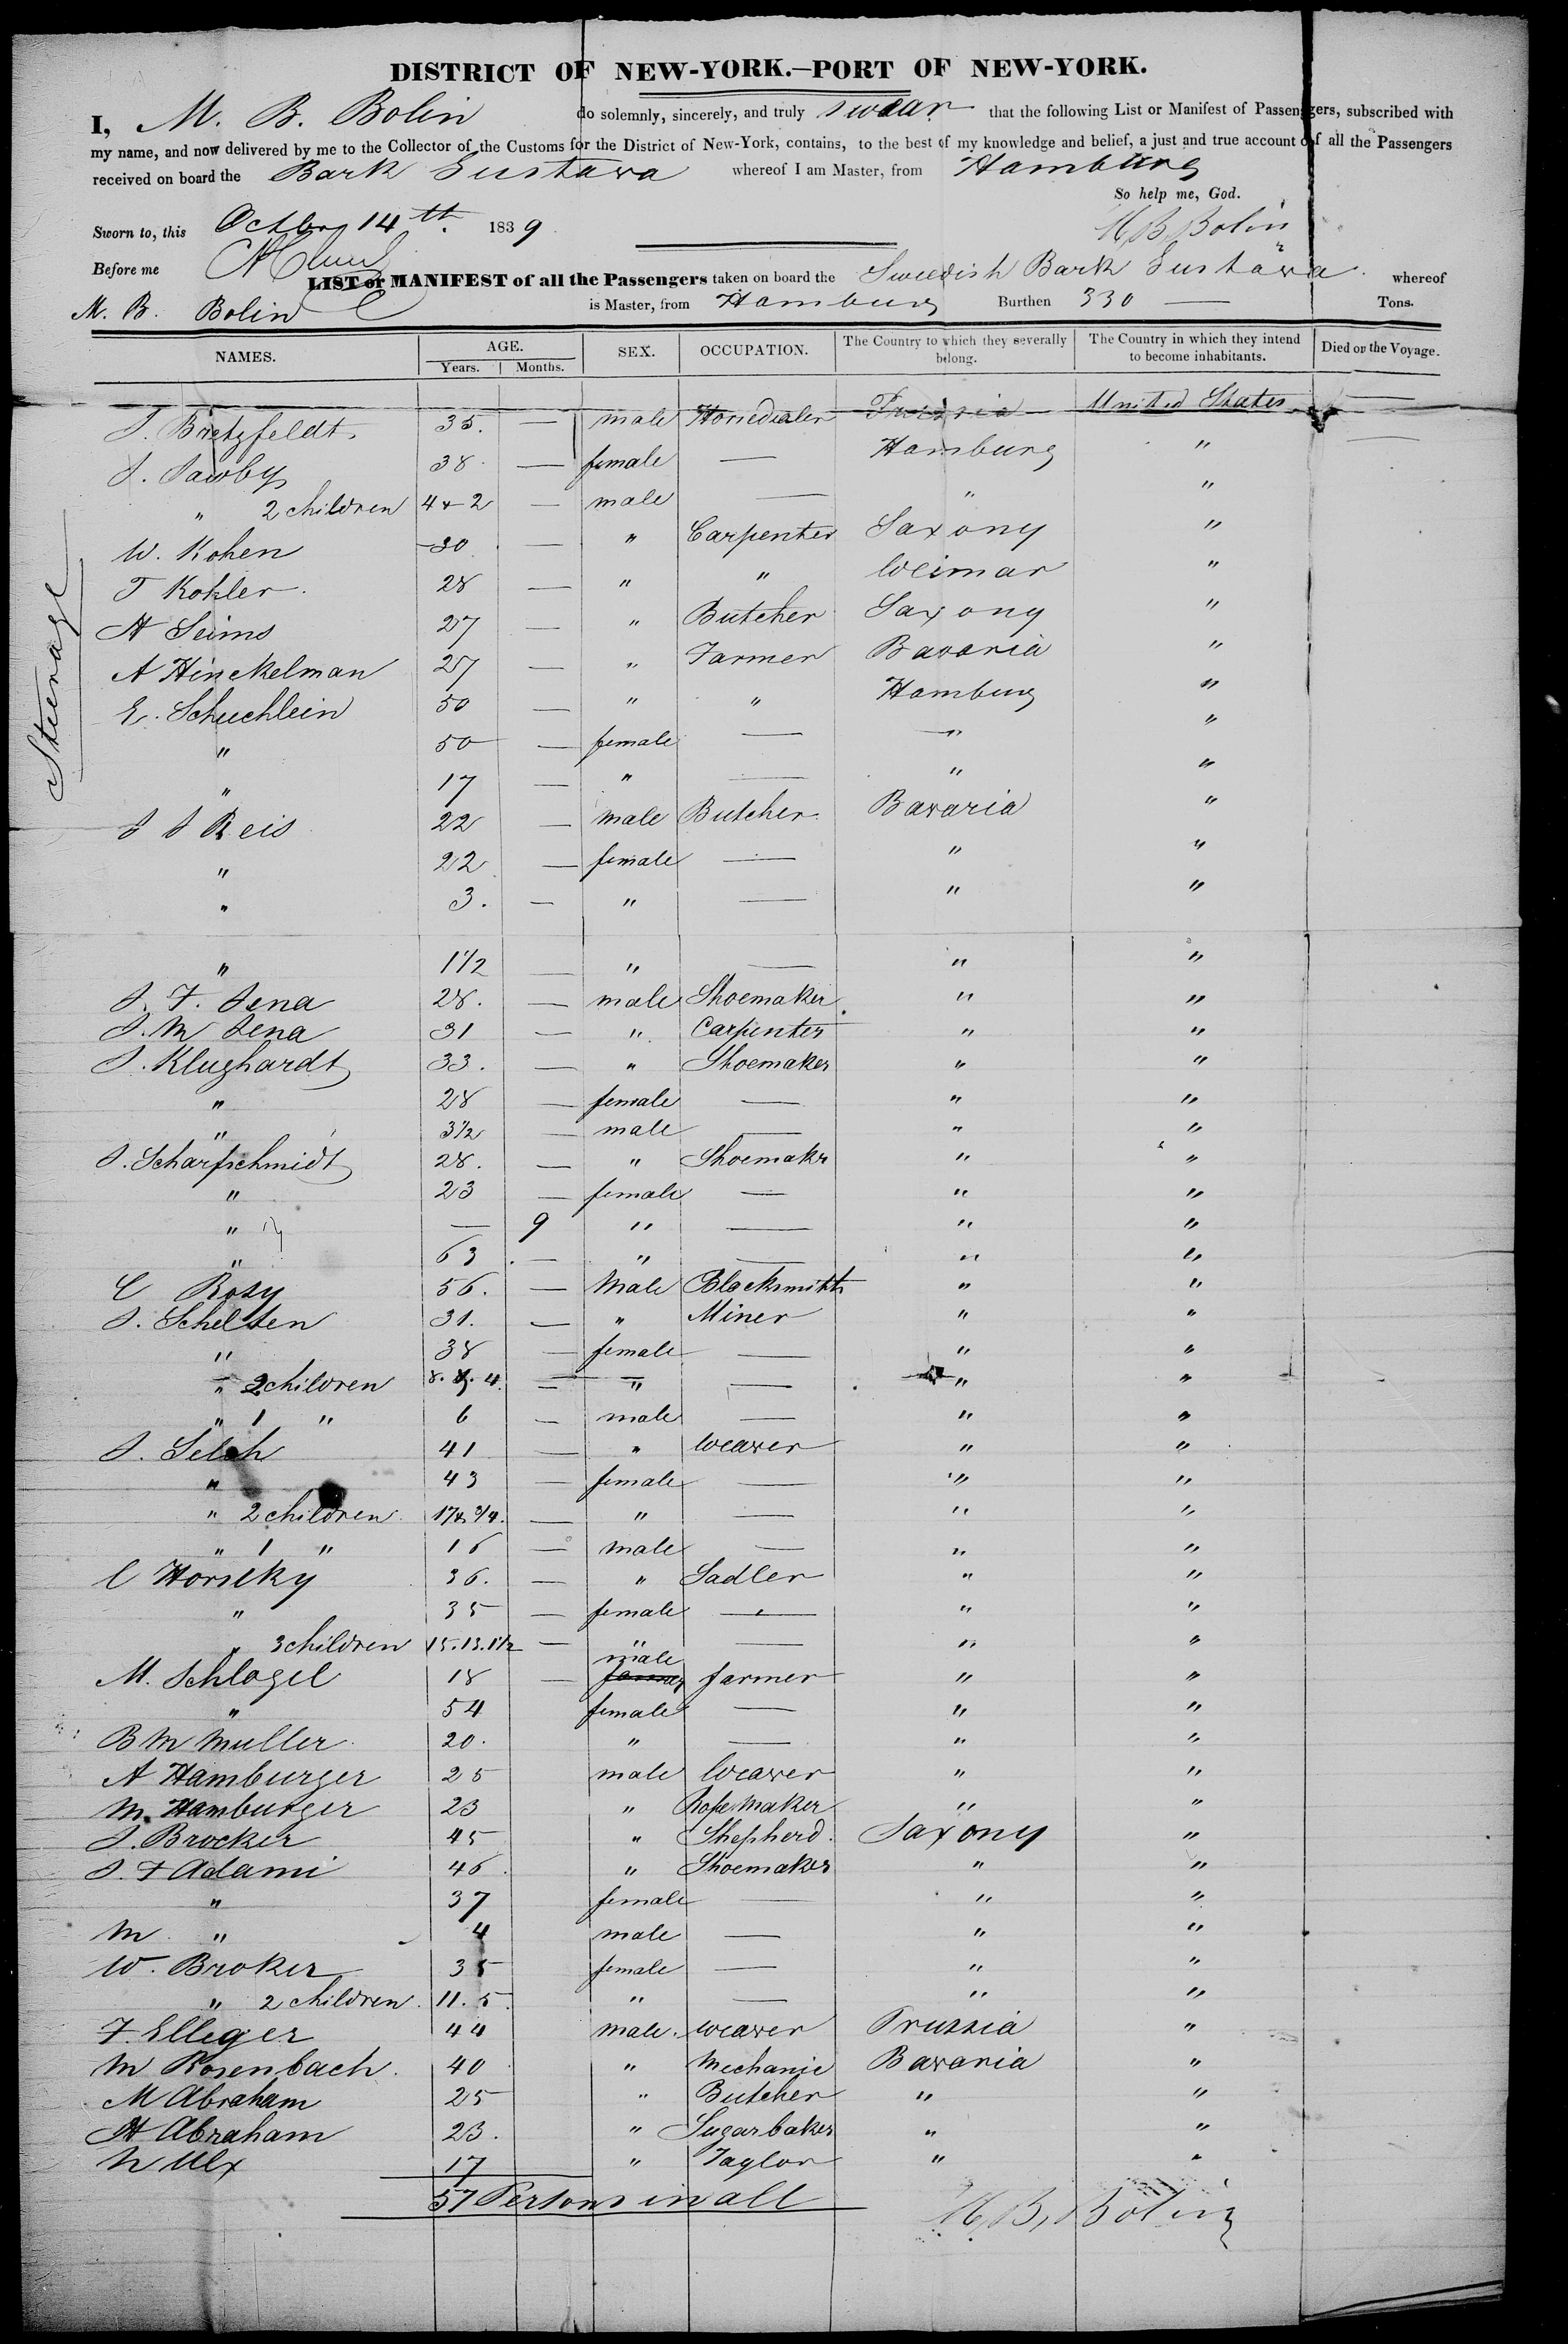 DISTRICT OF NEW-YORK.—PORT OF NEW-YORK.
I, M. B. Bolin do solemnly, sincerely, and truly swear that the following List or Manifest of Passengers, subscribed with
my name, and now delivered by me to the Collector of the Customs for the District of New-York, contains, to the best of my knowledge and belief, a just and true account of all the Passengers
received on board the Bark Gustava whereof I am Master, from Hamburg
So help me, God.
Sworn to, this Octber 14th. 1839 M, B, Bolin
Before me
LIST or MANIFEST of all the Passengers taken on board the Sweedish Bark Gustava. whereof
M. B. Bolin is Master, from Hamburg Burthen 330 — Tons.
NAMES. AGE. SEX. OCCUPATION. The Country to which they severally belong. The Country in which they intend to become inhabitants. Died on the Voyage.
Years. Months.
Steerage
J. Bretzfeldt 35. — male Horsedealer Prussia United States —
J. Sawby 38 — female — Hamburg " —
" 2 children 4 + 2 — male — " "
W. Kohen 30 — " Carpenter Saxony "
T Kohler 28 — " " Weimar "
H Seims 27 — " Butcher Saxony "
A Hinckelman 27 — " Farmer Bavaria "
E. Schuchlein 50 — " " Hamburg "
" 50 — female — " "
" 17 — " — " "
J J Reis 22 — male Butcher Bavaria "
" 22 — female — " "
" 3. — " — " "
" 1 1/2 — " — " "
J. F. Jena 28. — male Shoemaker " "
J. M Jena 31 — " Carpenter " "
J. Klughardt 33. — " Shoemaker " "
" 28 — female — " "
" 3 1/2 — male — " "
J. Scharfschmidt 28. — " Shoemakr " "
" 23 — female — " "
" — 9 " — " "
" 63. — " — " "
C Rosy 56. — Male Blacksmith " "
J. Schelten 31. — " Miner " "
" 38 — female — " "
" 2 children 8. 4. — " — " "
" 1 " 6 — male — " "
J. Selch 41 — " weaver " "
" 43 — female — " "
" 2 children 17 & 3/4. — " — " "
" 1 " 16 — male — " "
C Horseky 36. — " Sadler " "
" 35 — female — " "
" 3 children 15. 13. 1 1/2 — " — " "
M. Schlogel 18 — male farmer " "
" 54 female — " "
B M Muller 20. " — " "
A Hamburger 25 male Weaver " "
M. Hamburger 23 " Ropemaker " "
J. Brocker 45 " Shepherd. Saxony "
J. F Adami 46. " Shoemaker " "
" 37 female — " "
M " 4 male — " "
W. Broker 35 female — " "
" 2 children. 11. 5. " — " "
F. Elleger 44 male. weaver Prussia "
M Rosenbach. 40 " Mechanic Bavaria "
M Abraham 25 " Butcher " "
H Abraham 23. " Sugarbaker " "
N Ulx 17 " Taylor " "
57 Persons in all M, B, Bolin